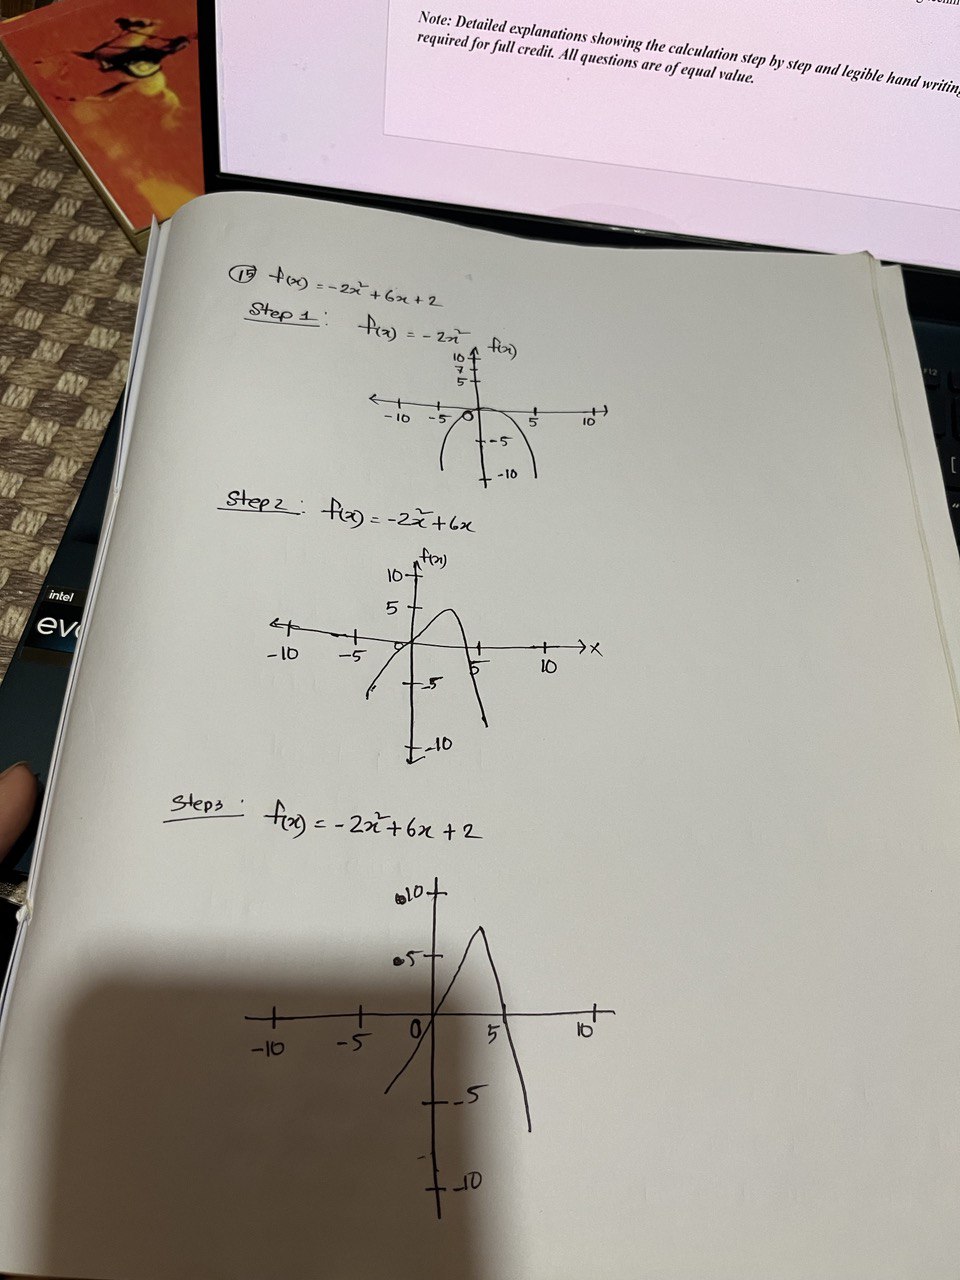 Note: Detailed explanations showing the calculation step by step and legible hand writing
required for full credit. All questions are of equal value.
F12
[
intel
evo
⑮ f(x) = -2x² + 6x + 2
Step 1: f(x) = -2x²
f(x)
10
7
5
-10 -5 0 5 10
-5
-10
Step 2: f(x) = -2x² + 6x
f(x)
10
5
-10 -5 0 5 10 x
-5
-10
Step 3: f(x) = -2x² + 6x + 2
10
5
-10 -5 0 5 10
-5
-10